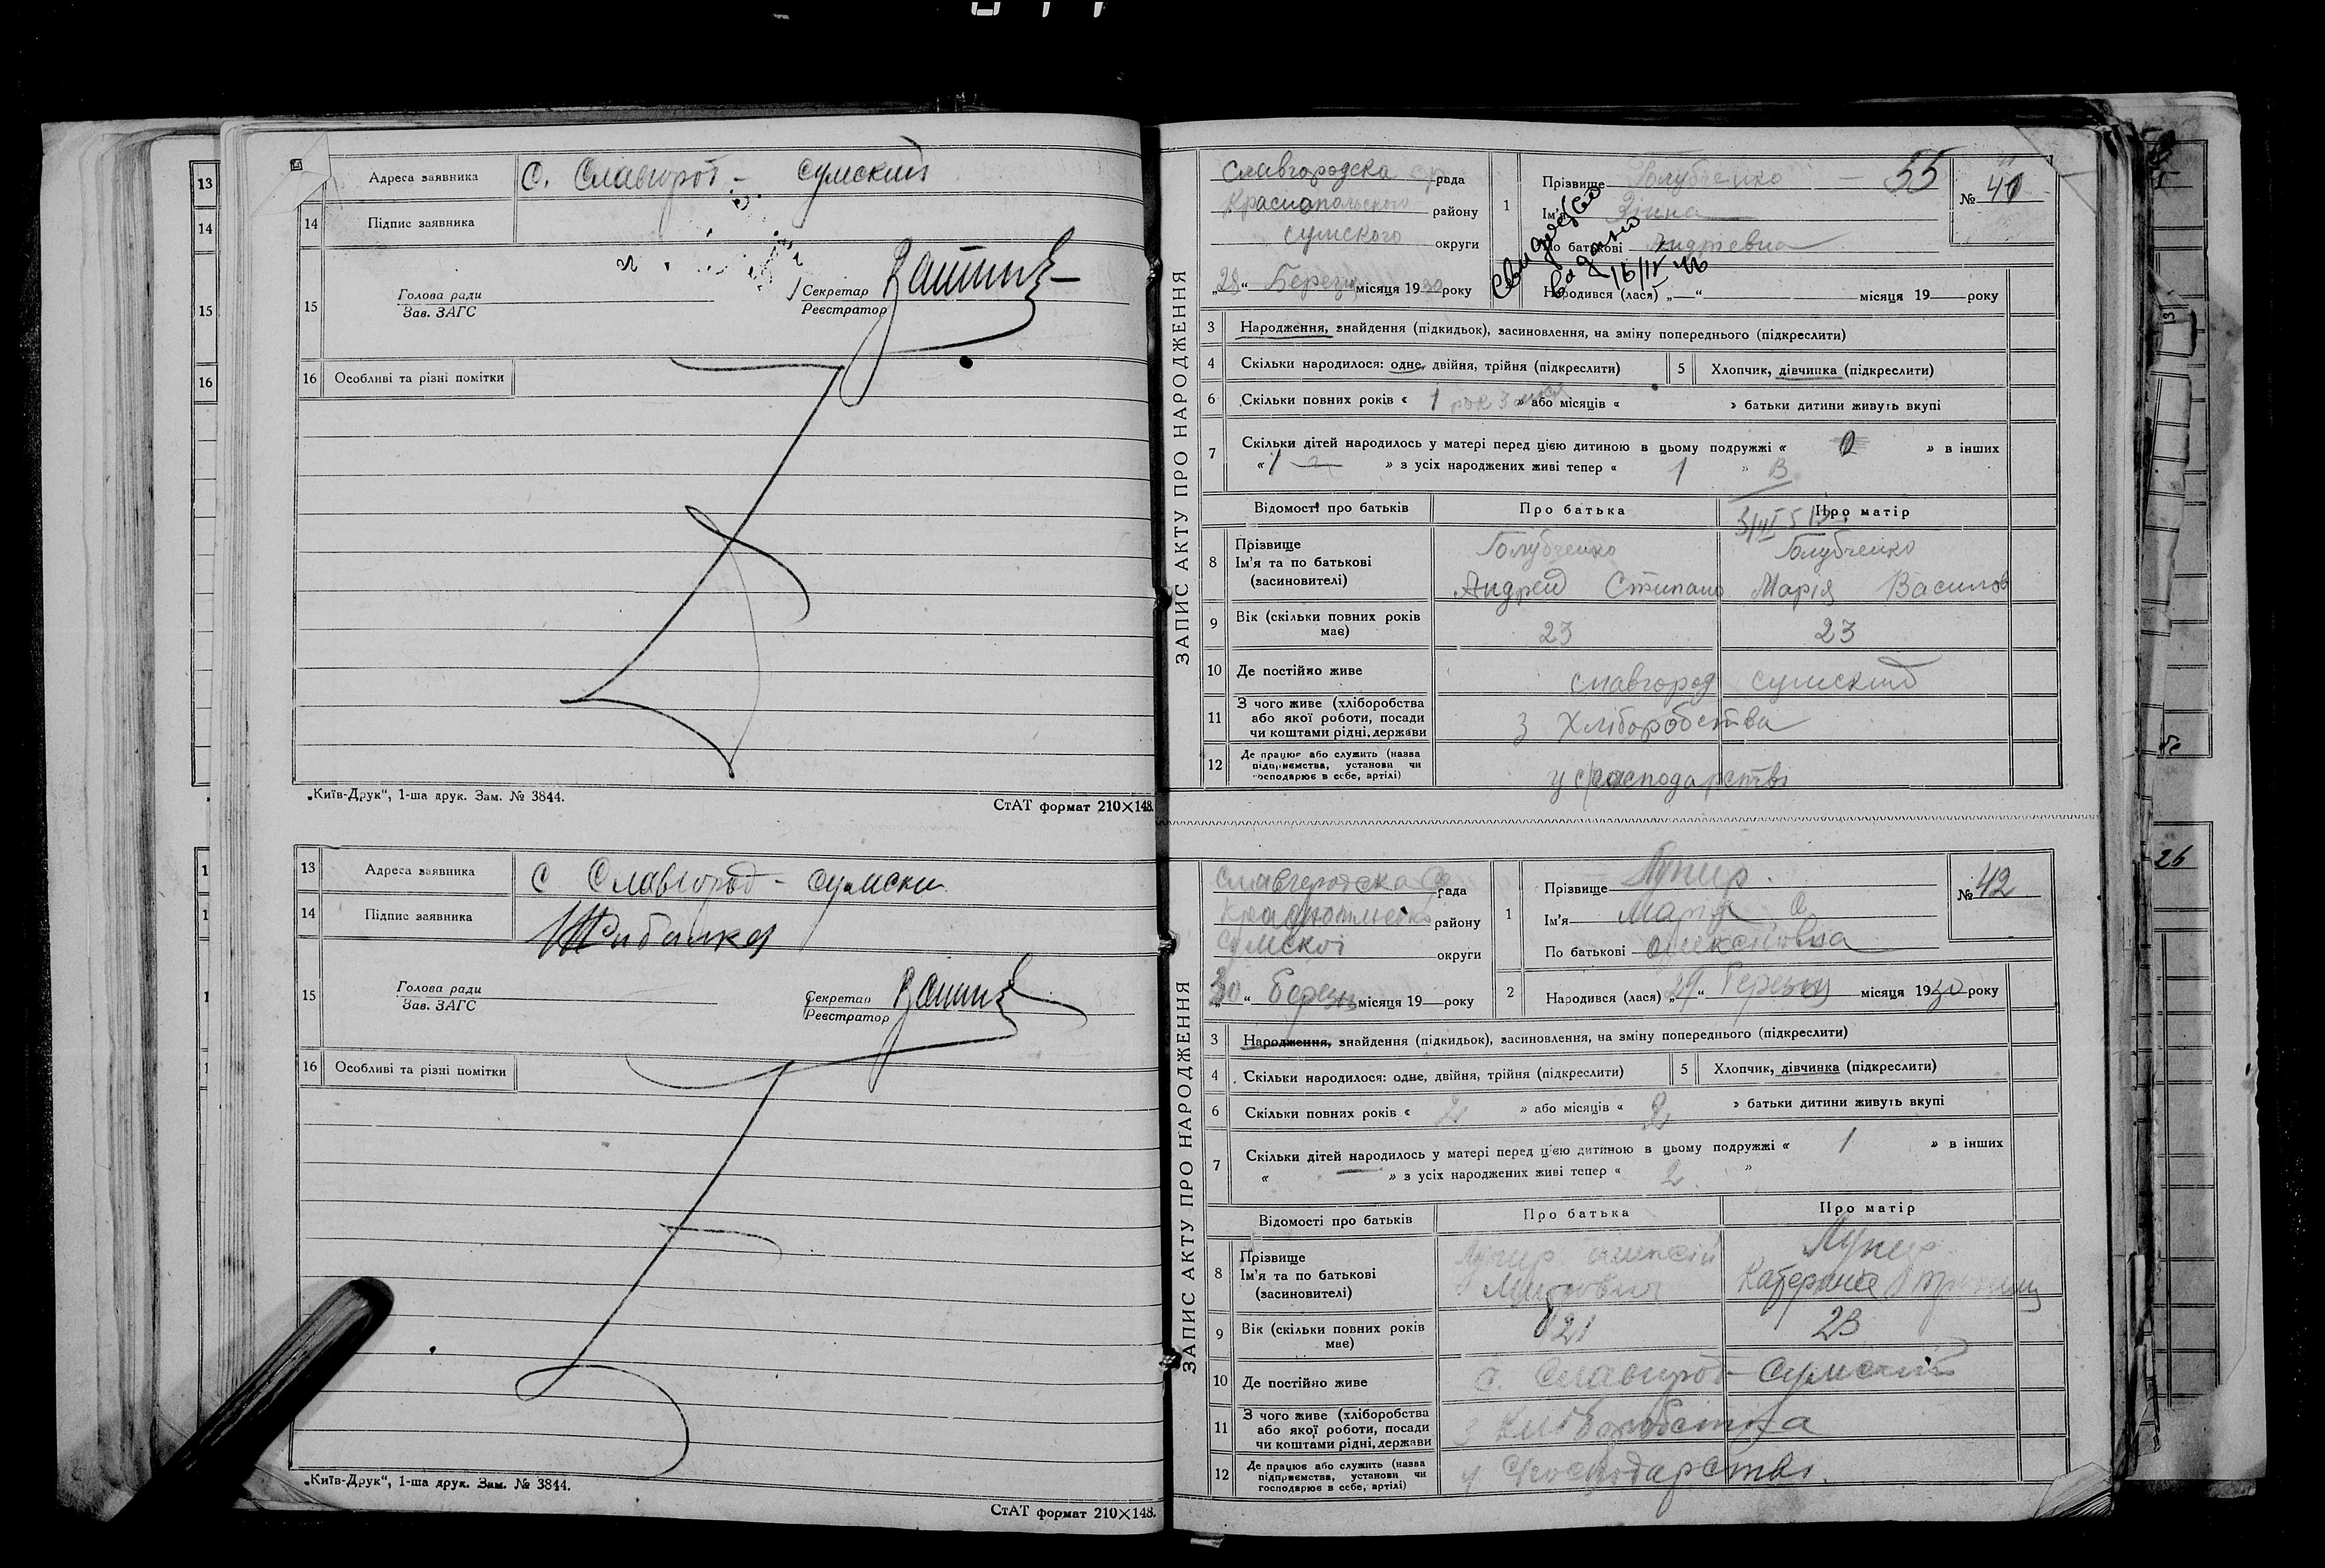 13
14
15
16
Адреса заявника С. Славгород - сумский
14 Підпис заявника
15 Голова ради
Зав. ЗАГС
Секретар
Реєстратор
16 Особливі та різні помітки
„Київ-Друк“, 1-ша друк. Зам. № 3844.
СтАТ формат 210×148.
13 Адреса заявника С Славгород - сумски
14 Підпис заявника
15 Голова ради
Зав. ЗАГС
Секретар
Реєстратор
16 Особливі та різні помітки
„Київ-Друк“, 1-ша друк. Зам. № 3844.
СтАТ формат 210×148.
ЗАПИС АКТУ ПРО НАРОДЖЕННЯ
Славгородска рада
Краснопольского району
сумского округи
„28“ Березня місяця 1930 року
1 Прізвище Голубченко 55
№ 41
Ім'я
По батькові
Свидоцтво
видано
16/IV 46
Народився (лася) „—“ місяця 19 року
3 Народження, знайдення (підкидьок), засиновлення, на зміну попереднього (підкреслити)
4 Скільки народилося: одне, двійня, трійня (підкреслити) 5 Хлопчик, дівчинка (підкреслити)
6 Скільки повних років « 1 рок 3 » або місяців « » батьки дитини живуть вкупі
7 Скільки дітей народилось у матері перед цією дитиною в цьому подружжі « 0 » в інших
« 1 » з усіх народжених живі тепер « 1 »
Відомості про батьків Про батька Про матір
8 Прізвище Голубченко Голубченко
Ім'я та по батькові
(засиновителі) Андрей Стипано Марія Василов
9 Вік (скільки повних років має) 23 23
10 Де постійно живе славгород сумский
11 З чого живе (хліборобства
або якої роботи, посади
чи коштами рідні, держави З Хліборобства
12 Де працює або служить (назва
підприємства, установи чи
господарює в себе, артілі) у с/господарстві
ЗАПИС АКТУ ПРО НАРОДЖЕННЯ
Славгородска рада
району
сумскої округи
„30“ Березня місяця 19 року
1 Прізвище Лупир
№ 42
Ім'я Марія
По батькові Олексіївна
2 Народився (лася) „29“ Березня місяця 1930 року
3 Народження, знайдення (підкидьок), засиновлення, на зміну попереднього (підкреслити)
4 Скільки народилося: одне, двійня, трійня (підкреслити) 5 Хлопчик, дівчинка (підкреслити)
6 Скільки повних років « 2 » або місяців « 2 » батьки дитини живуть вкупі
7 Скільки дітей народилось у матері перед цією дитиною в цьому подружжі « 1 » в інших
« — » з усіх народжених живі тепер « 2 »
Відомості про батьків Про батька Про матір
8 Прізвище Лупир Лупир
Ім'я та по батькові
(засиновителі) Катерина
9 Вік (скільки повних років має) 21 23
10 Де постійно живе С. Славгород - Сумский
11 З чого живе (хліборобства
або якої роботи, посади
чи коштами рідні, держави З Хліборобства
12 Де працює або служить (назва
підприємства, установи чи
господарює в себе, артілі) у с/господарстві.
26